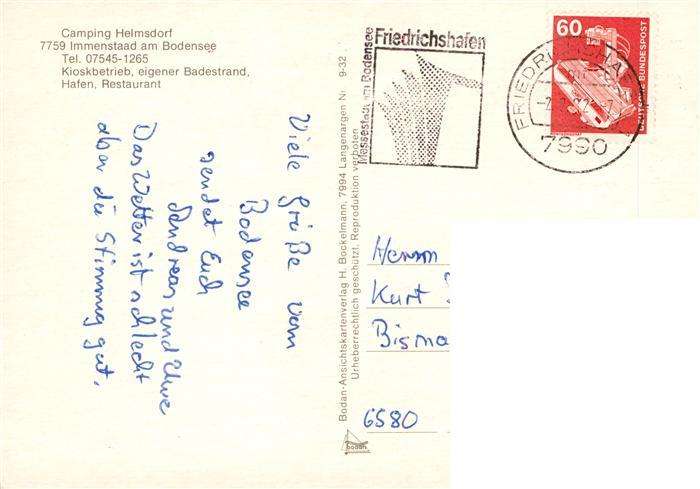 Camping Helmsdorf
7759 Immenstaad am Bodensee
Tel. 07545-1265
Kioskbetrieb, eigener Badestrand,
Hafen, Restaurant
Viele Grüße vom
Bodensee
sendet Euch
Andreas und Uwe
Das Wetter ist schlecht
aber die Stimmung gut.
Bodan-Ansichtskartenverlag H. Bockelmann, 7994 Langenargen Nr. 9-32
Urheberrechtlich geschützt. Reproduktion verboten
bodan
Messestadt am Bodensee
Friedrichshafen
60
DEUTSCHE BUNDESPOST
FRIEDRICHSHA
7990
Herrn
Kurt
Bisma
6580